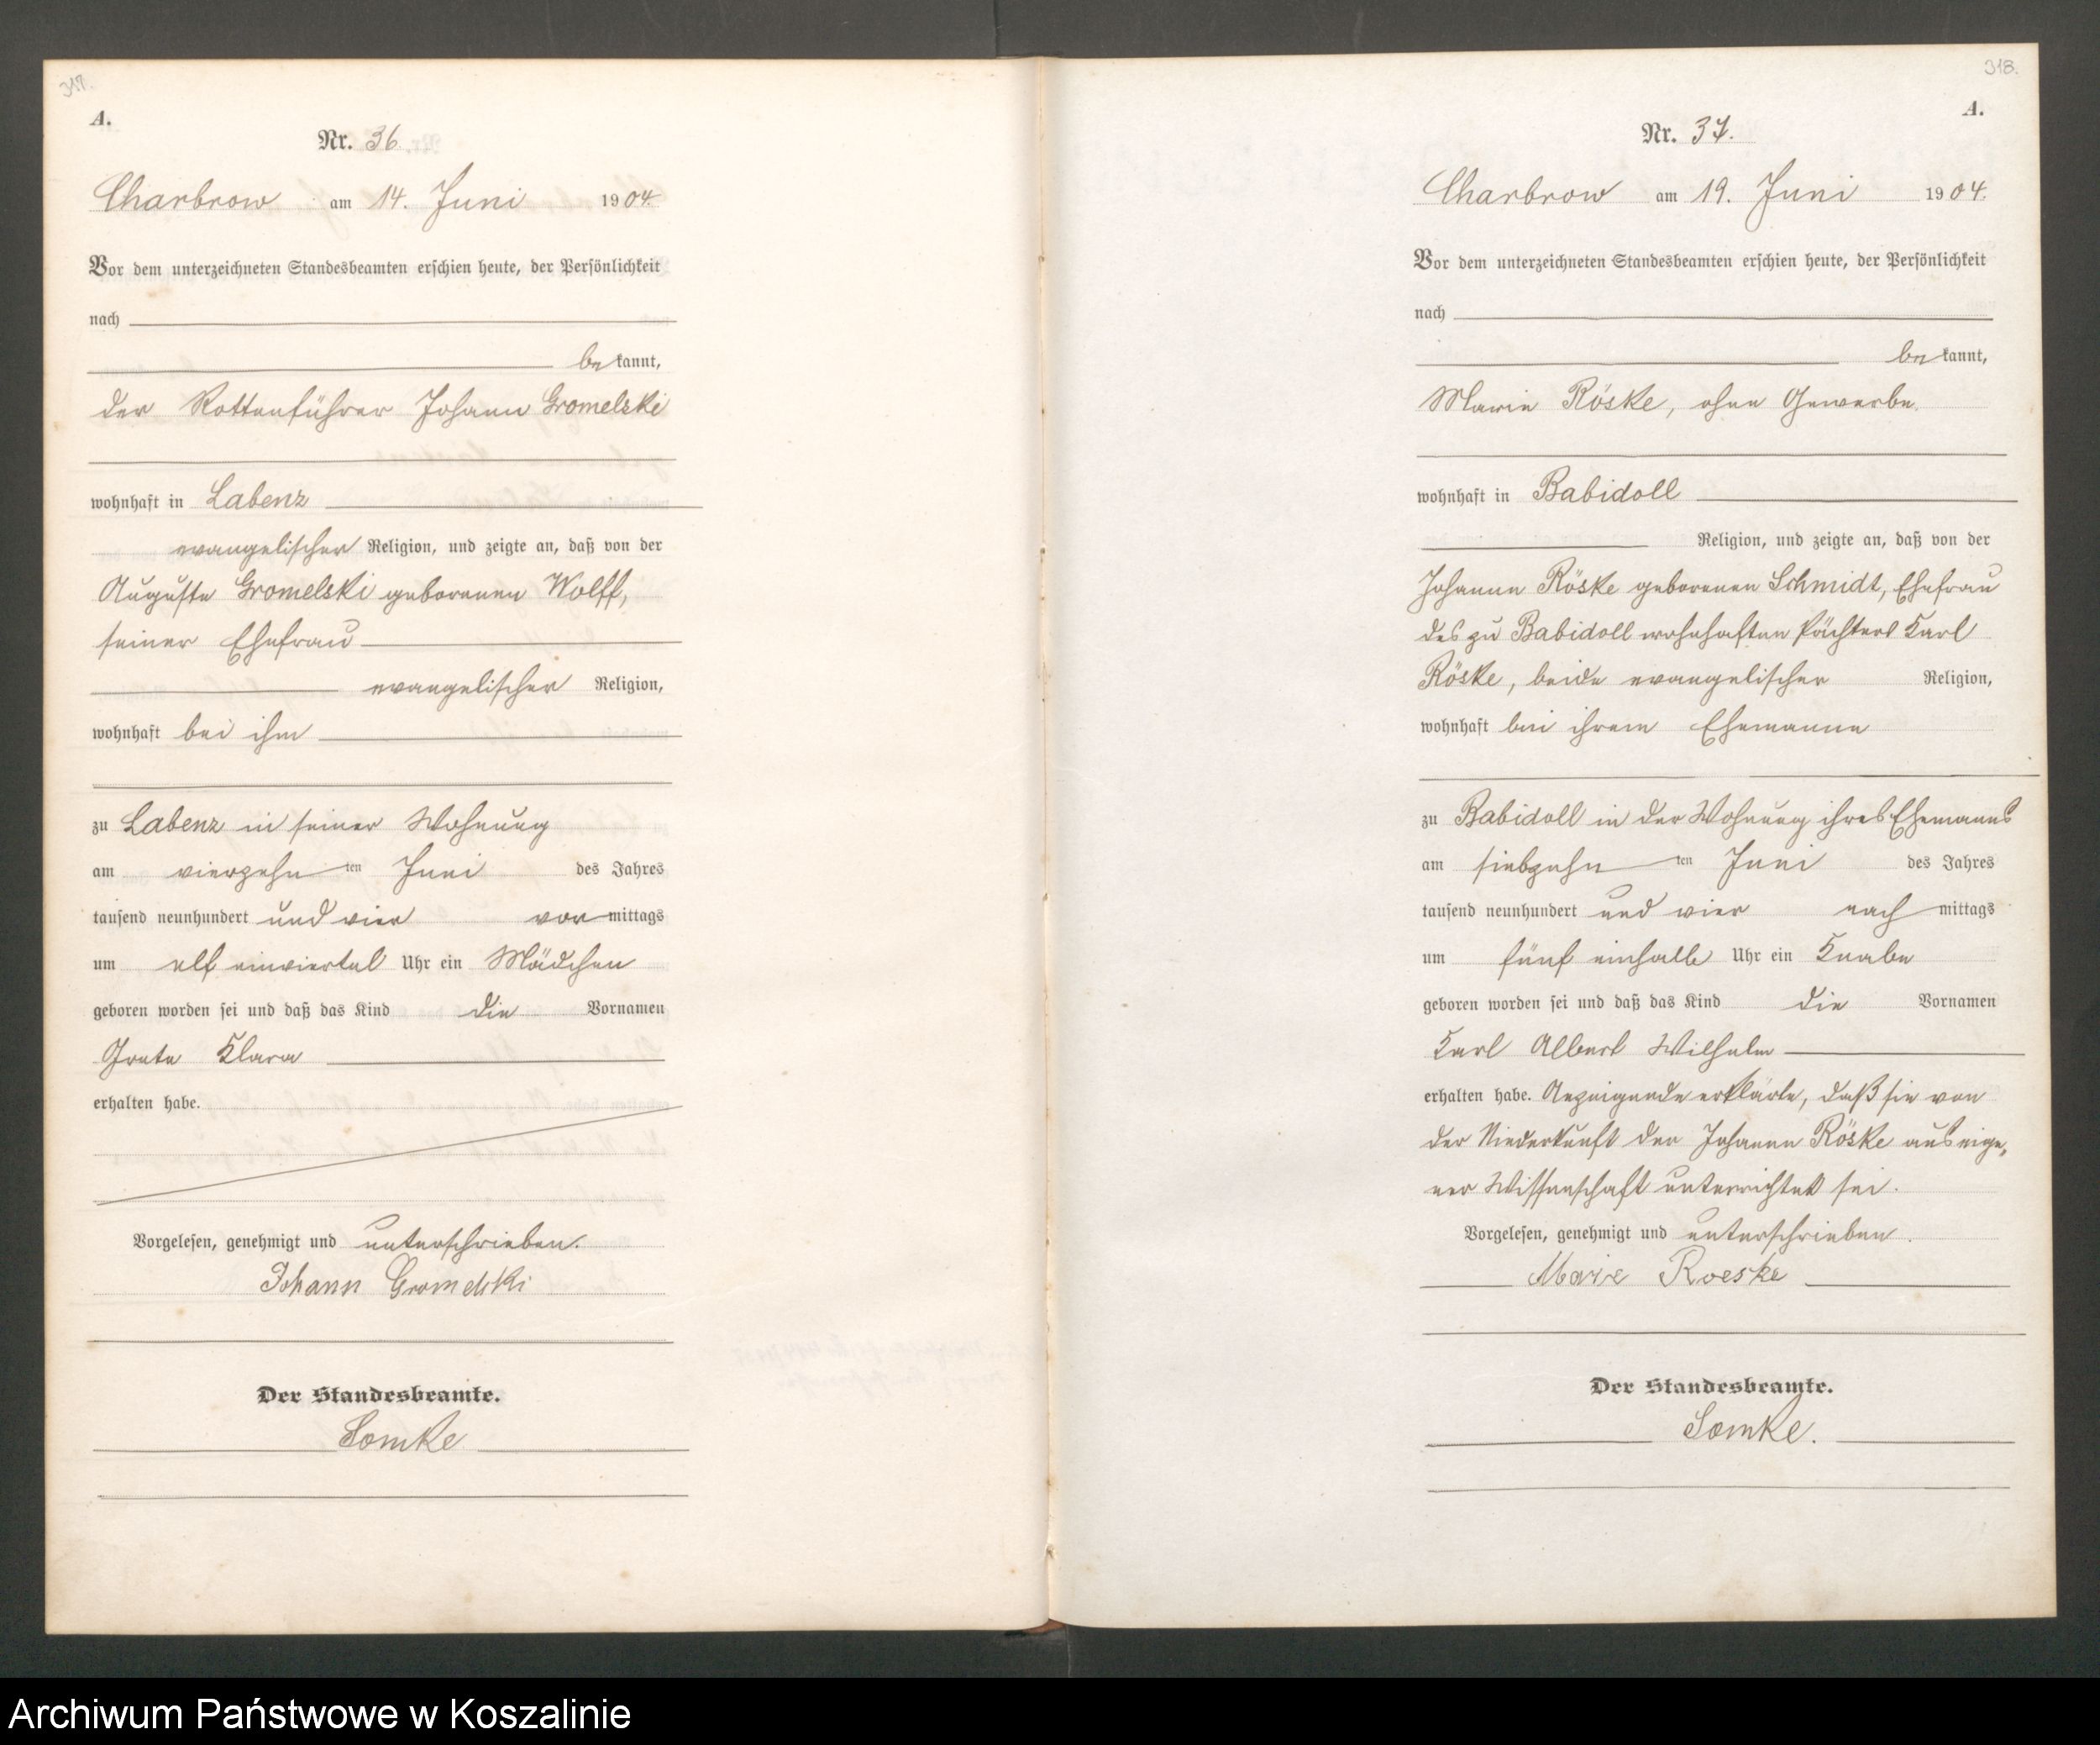 317.
A.
Nr. 36
Charbrow am 14. Juni 1904.
Vor dem unterzeichneten Standesbeamten erschien heute, der Persönlichkeit
nach
bekannt,
der Rottenführer Johann Gromelski
wohnhaft in Labenz
evangelischer Religion, und zeigte an, daß von der
Auguste Gromelski geborenen Wolff,
seiner Ehefrau
evangelischer Religion,
wohnhaft bei ihm
zu Labenz in seiner Wohnung
am vierzehnten Juni des Jahres
tausend neunhundert und vier vormittags
um elf einviertel Uhr ein Mädchen
geboren worden sei und daß das Kind die Vornamen
Grete Klara
erhalten habe.
Vorgelesen, genehmigt und unterschrieben.
Johann Gromelski
Der Standesbeamte.
Somke
318.
A.
Nr. 37.
Charbrow am 19. Juni 1904.
Vor dem unterzeichneten Standesbeamten erschien heute, der Persönlichkeit
nach
bekannt,
Marie Röske, ohne Gewerbe
wohnhaft in Babidoll
Religion, und zeigte an, daß von der
Johanne Röske geborenen Schmidt, Ehefrau
des zu Babidoll wohnhaften Pächters Karl
Röske, beide evangelischer Religion,
wohnhaft bei ihrem Ehemanne
zu Babidoll in der Wohnung ihres Ehemanns
am siebzehnten Juni des Jahres
tausend neunhundert und vier nachmittags
um fünf einhalb Uhr ein Knabe
geboren worden sei und daß das Kind die Vornamen
Karl Albert Wilhelm
erhalten habe. Anzeigende erklärte, daß sie von
der Niederkunft der Johanne Röske aus eige„
ner Wissenschaft unterrichtet sei.
Vorgelesen, genehmigt und unterschrieben.
Marie Roeske
Der Standesbeamte.
Somke.
Archiwum Państwowe w Koszalinie